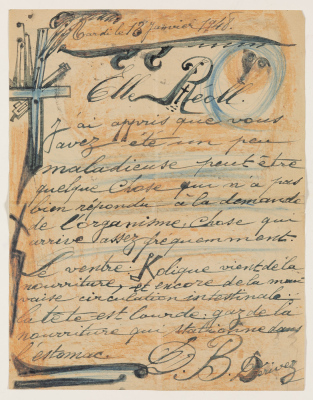 Mardi le 13 Janvier 1948.
Elle Réoll.
J'ai appris que vous
avez été un peu
maladieuse peut être
quelque chose qui n'a pas
bien répondu à la demande
de l'organisme. Chose qui
arrive assez fréquemment.
Le ventre. Kolique vient de la
nourriture, et encore de la mau
vaise circulation intestinale.
la tête est lourde. gaz de la
nourriture qui stationne dans
l'estomac.